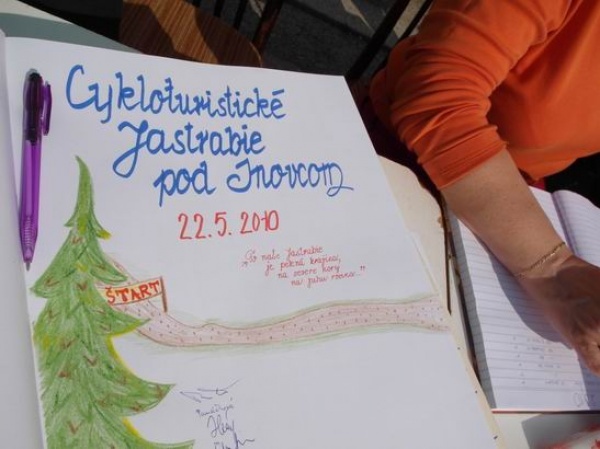 Cykloturistické
Jastrabie
pod Inovcom
22.5.2010
"To naše Jastrabie
je pekná krajina,
na severe hory
na juhu rovina..."
ŠTART